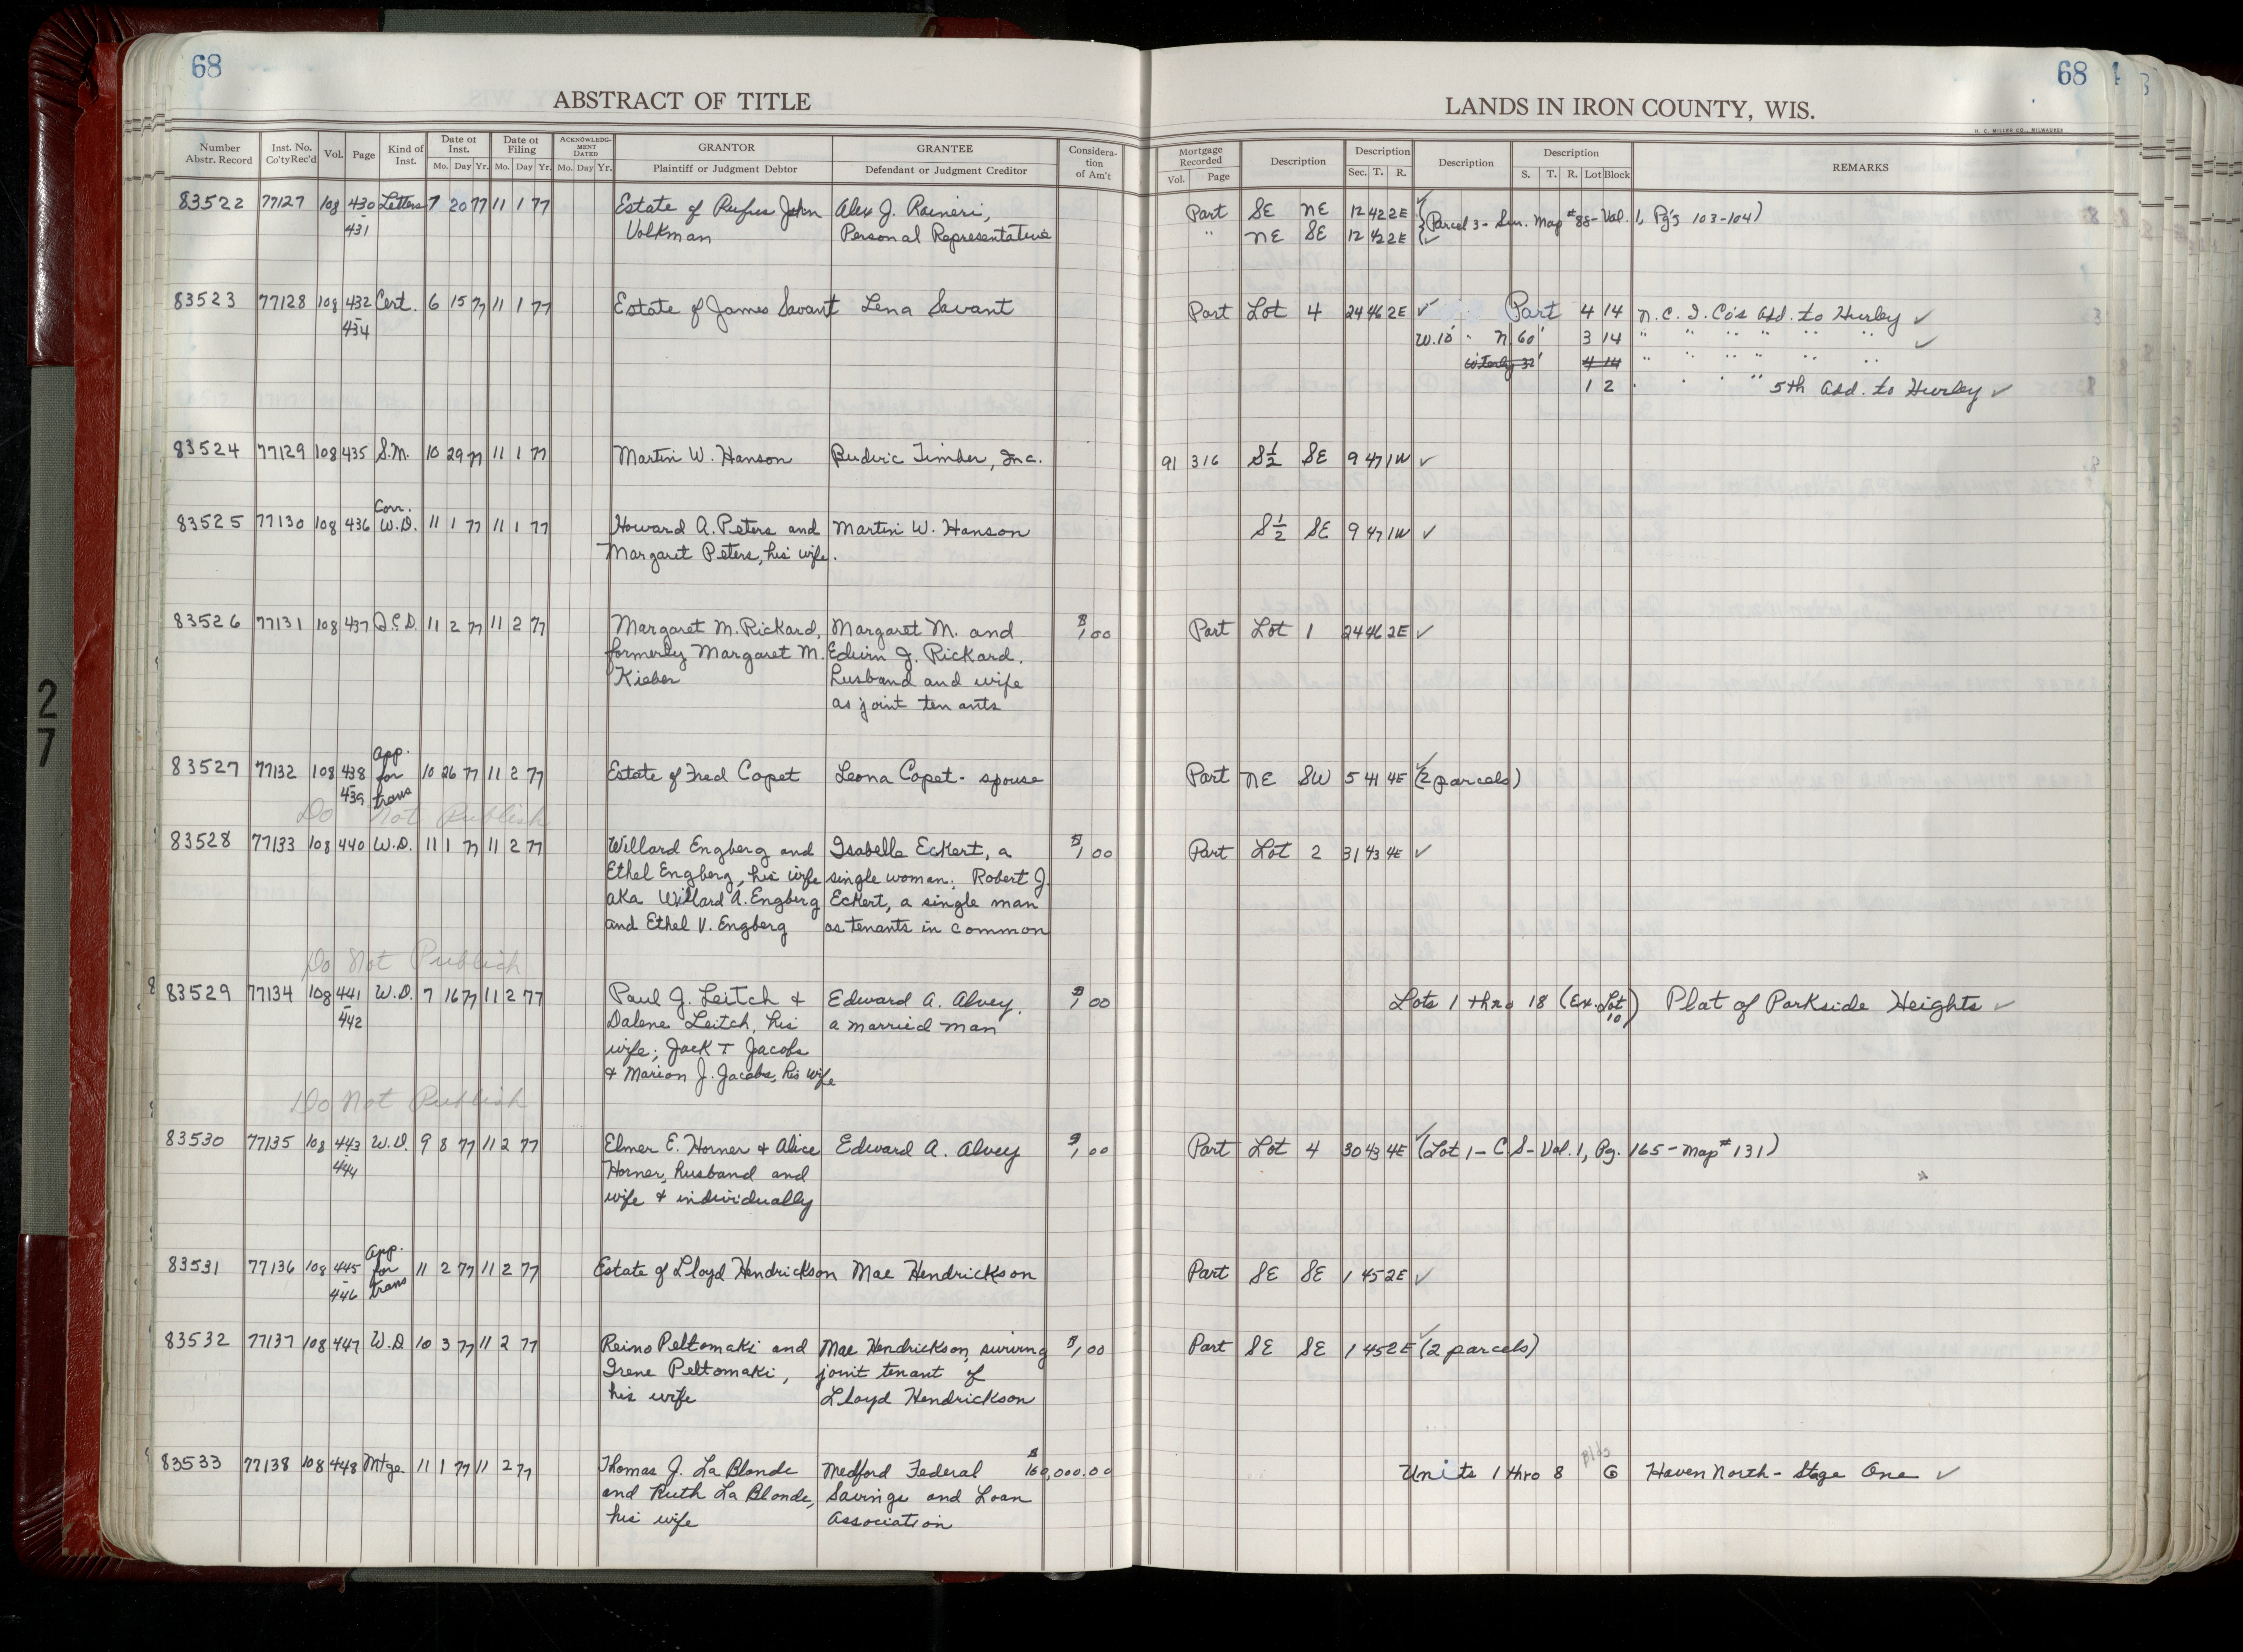 68
ABSTRACT OF TITLE
Number Abstr. Record
Inst. No. Co'ty Rec'd
Vol.
Page
Kind of Inst.
Date of Inst. Mo. Day Yr.
Date of Filing Mo. Day Yr.
ACKNOWLEDGMENT DATED Mo. Day Yr.
GRANTOR Plaintiff or Judgment Debtor
GRANTEE Defendant or Judgment Creditor
Consideration of Am't
83522 77127 108 430 Letters 7 20 77 11 1 77 Estate of Rufus John Alex J. Raineri,
431 Volkman Personal Representative
83523 77128 108 432 Cert. 6 15 77 11 1 77 Estate of James Savant Lena Savant
434
83524 77129 108 435 S.M. 10 29 77 11 1 77 Martin W. Hanson Budvic Timber, Inc.
Corr.
83525 77130 108 436 W.D. 11 1 77 11 1 77 Howard A. Peters and Martin W. Hanson
Margaret Peters, his wife.
83526 77131 108 437 Q.C.D. 11 2 77 11 2 77 Margaret M. Rickard, Margaret M. and $1.00
formerly Margaret M. Edwin J. Rickard.
Kieber husband and wife
as joint tenants
App.
83527 77132 108 438 for 10 26 77 11 2 77 Estate of Fred Copet Leona Copet - spouse
439 trans
Do Not Publish
83528 77133 108 440 W.D. 11 1 77 11 2 77 Willard Engberg and Isabelle Eckert, a $1.00
Ethel Engberg, his wife single woman; Robert J.
aka Willard A. Engberg Eckert, a single man
and Ethel V. Engberg as tenants in common
Do Not Publish
83529 77134 108 441 W.D. 7 16 77 11 2 77 Paul J. Leitch & Edward A. Alvey, $1.00
442 Dalene Leitch, his a married man
wife; Jack T Jacobs
& Marion J. Jacobs, his wife
Do Not Publish
83530 77135 108 443 W.D. 9 8 77 11 2 77 Elmer E. Horner & Alice Edward A. Alvey $1.00
444 Horner, husband and
wife & individually
App.
83531 77136 108 445 for 11 2 77 11 2 77 Estate of Lloyd Hendrickson Mae Hendrickson
446 trans
83532 77137 108 447 W.D 10 3 77 11 2 77 Reino Peltomaki and Mae Hendrickson, surving $1.00
Irene Peltomaki, joint tenant of
his wife Lloyd Hendrickson
83533 77138 108 448 Mtge 11 1 77 11 2 77 Thomas J. La Blonde Medford Federal $160,000.00
and Ruth La Blonde, Savings and Loan
his wife Association
68
LANDS IN IRON COUNTY, WIS.
H. C. MILLER CO., MILWAUKEE
Mortgage Recorded Vol. Page
Description
Description Sec. T. R.
Description
Description S. T. R. Lot Block
REMARKS
Part SE NE 12 42 2E ✓ (Parcel 3 - Sur. Map #88 - Vol. 1, Pg's 103-104)
" NE SE 12 42 2E ✓
Part Lot 4 24 46 2E ✓ Part 4 14 N.C.I. Co's Add. to Hurley ✓
W.10' " N 60' 3 14 " " " " " " " ✓
W'terly 32' 4 14 " " " " " " "
1 2 " " " " 5th Add. to Hurley ✓
91 316 S½ SE 9 47 1W ✓
S½ SE 9 47 1W ✓
Part Lot 1 24 46 2E ✓
Part NE SW 5 41 4E ✓ (2 parcels)
Part Lot 2 31 43 4E ✓
Lots 1 thro 18 (Ex. Lot 10) Plat of Parkside Heights ✓
Part Lot 4 30 43 4E ✓ (Lot 1 - C S - Vol. 1, Pg. 165 - Map #131)
Part SE SE 1 45 2E ✓
Part SE SE 1 45 2E ✓ (2 parcels)
Bldg
Units 1 thro 8 G Haven North - Stage One ✓
27